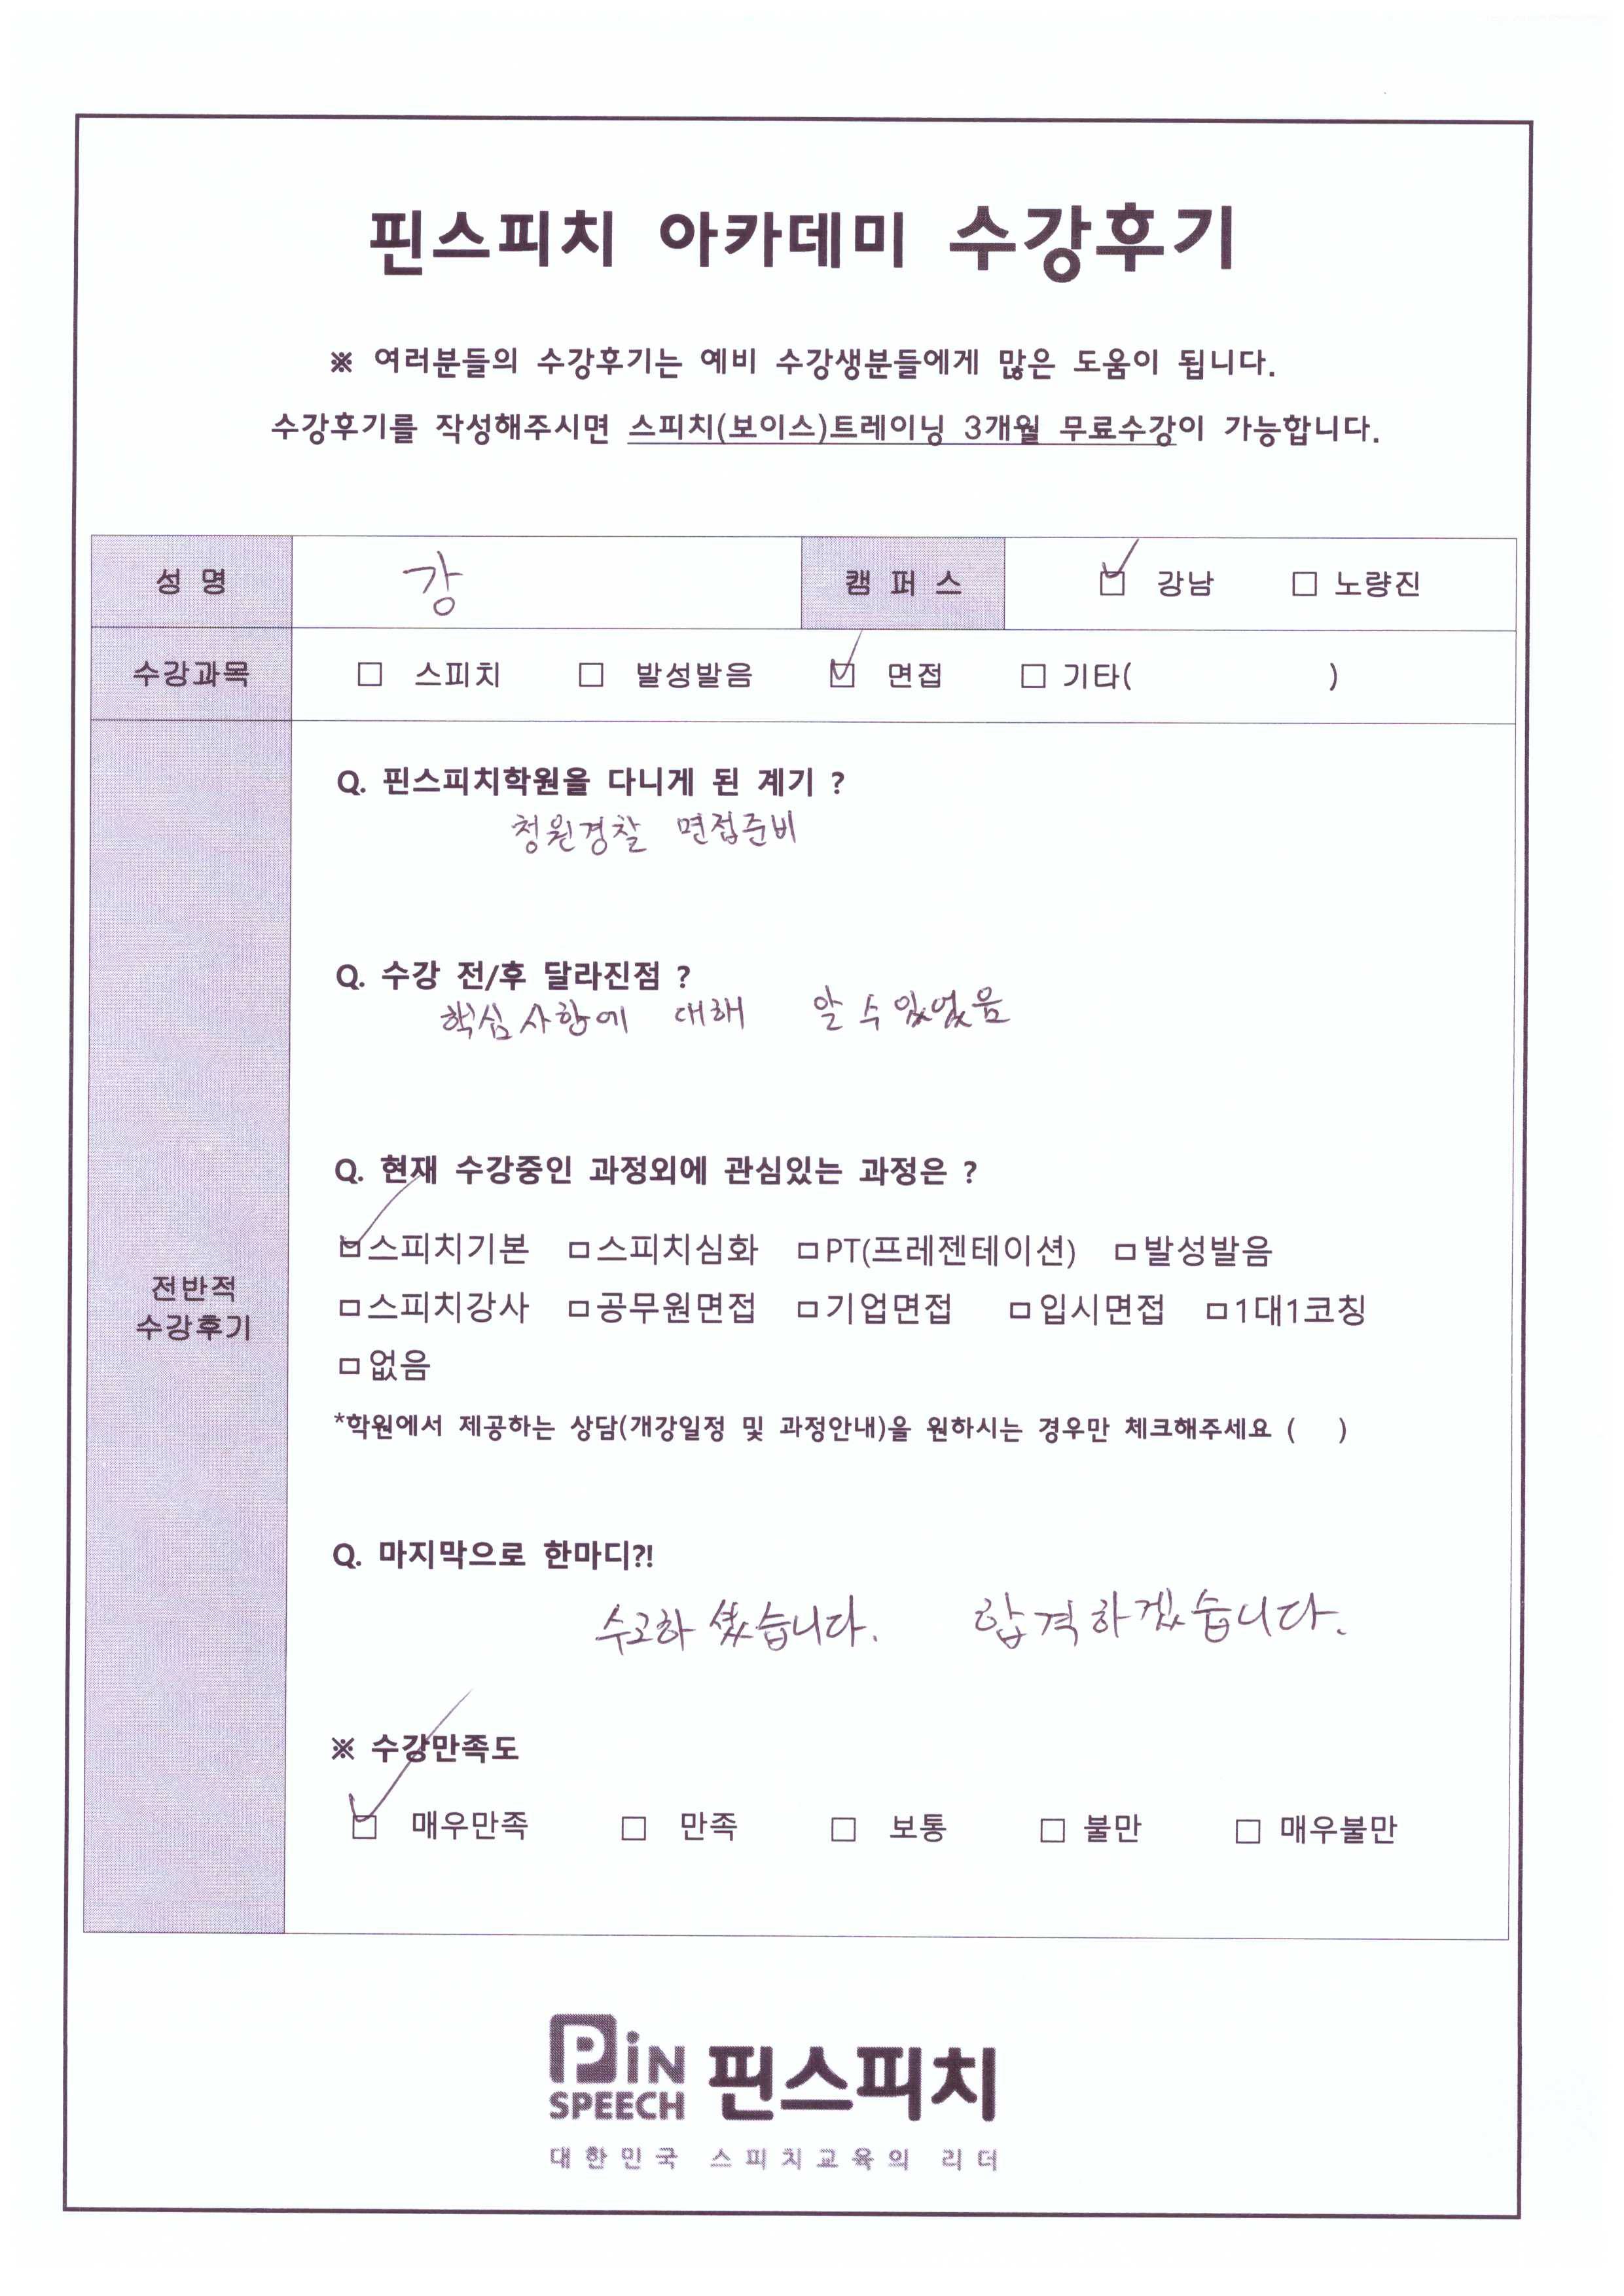 핀스피치 아카데미 수강후기
※ 여러분들의 수강후기는 예비 수강생분들에게 많은 도움이 됩니다.
수강후기를 작성해주시면 스피치(보이스)트레이닝 3개월 무료수강이 가능합니다.
성 명 강 캠 퍼 스 ☑ 강남 □ 노량진
수강과목 □ 스피치 □ 발성발음 ☑ 면접 □ 기타( )
Q. 핀스피치학원을 다니게 된 계기 ?
청원경찰 면접준비
Q. 수강 전/후 달라진점 ?
핵심사항에 대해 알 수 있었음
Q. 현재 수강중인 과정외에 관심있는 과정은 ?
☑스피치기본 □스피치심화 □PT(프레젠테이션) □발성발음
전반적
수강후기
□스피치강사 □공무원면접 □기업면접 □입시면접 □1대1코칭
□없음
*학원에서 제공하는 상담(개강일정 및 과정안내)을 원하시는 경우만 체크해주세요 ( )
Q. 마지막으로 한마디?!
수고하셨습니다. 합격하겠습니다.
※ 수강만족도
☑ 매우만족 □ 만족 □ 보통 □ 불만 □ 매우불만
PiN
SPEECH
핀스피치
대한민국 스피치교육의 리더